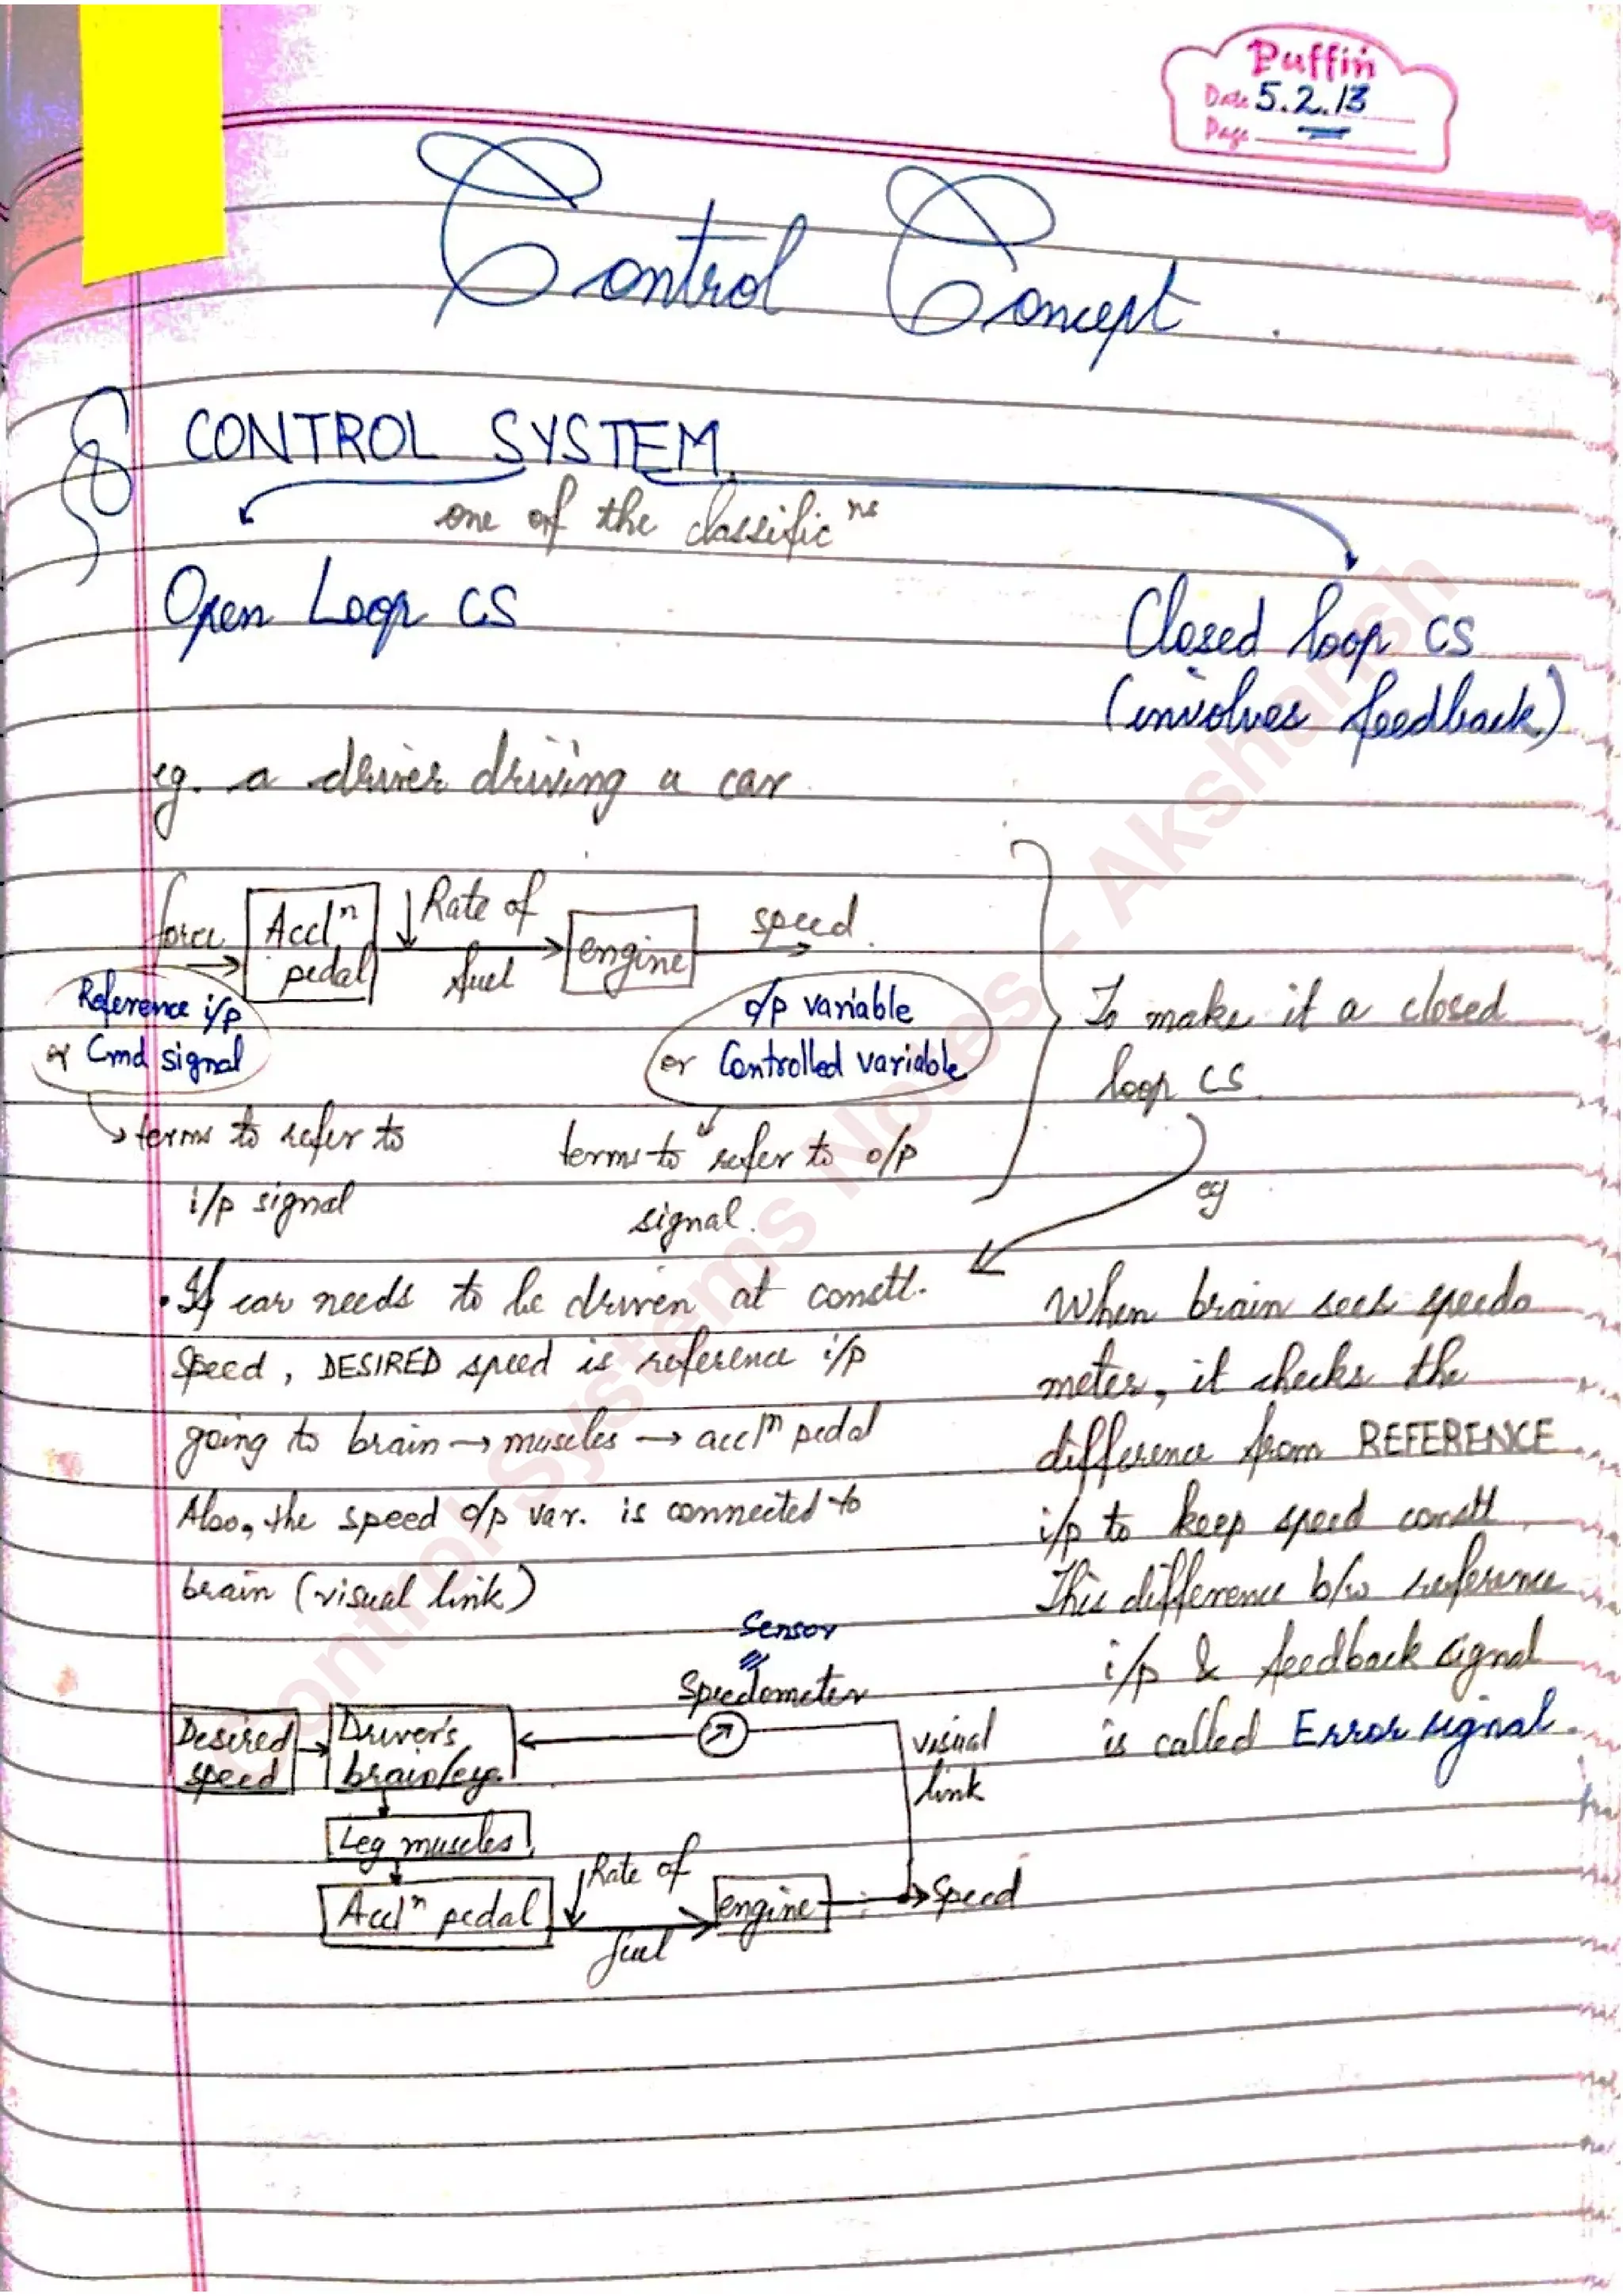 Puffin
Date 5.2.13
Page
Control Concept.
CONTROL SYSTEM
one of the classific ns
Open Loop CS
Closed loop CS
(involves feedback)
eg. a driver driving a car
force
Accl n
pedal
Rate of
fuel
engine
speed.
Reference i/p
or Cmd signal
o/p variable
or Controlled variable
terms to refer to
i/p signal
terms to refer to o/p
signal.
To make it a closed
loop CS.
eg
• If car needs to be driven at constt.
speed, DESIRED speed is reference i/p
going to brain → muscles → accl n pedal
Also, the speed o/p var. is connected to
brain (visual link)
When brain sees speedo
meter, it checks the
difference from REFERENCE
i/p to keep speed constt.
This difference b/w reference
i/p & feedback signal
is called Error signal.
Sensor
Speedometer
Desired
speed
Driver's
brain/eye
visual
link
Leg muscles
Accl n pedal
Rate of
fuel
engine
Speed
Control Systems Notes - Akshansh